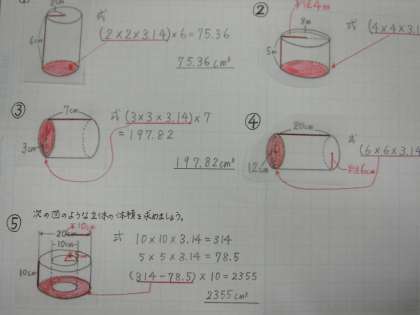 ①
6cm
式
(2×2×3.14)×6=75.36
75.36cm³
②
8m
半径4m
5m
式 (4×4×3.1
③
7cm
3cm
式 (3×3×3.14)×7
=197.82
197.82cm³
④
20cm
12cm
半径6cm
式
(6×6×3.14
⑤
次の図のような立体の体積を求めましょう。
半径10cm
20cm
10cm
10cm
式 10×10×3.14=314
5×5×3.14=78.5
(314-78.5)×10=2355
2355cm³